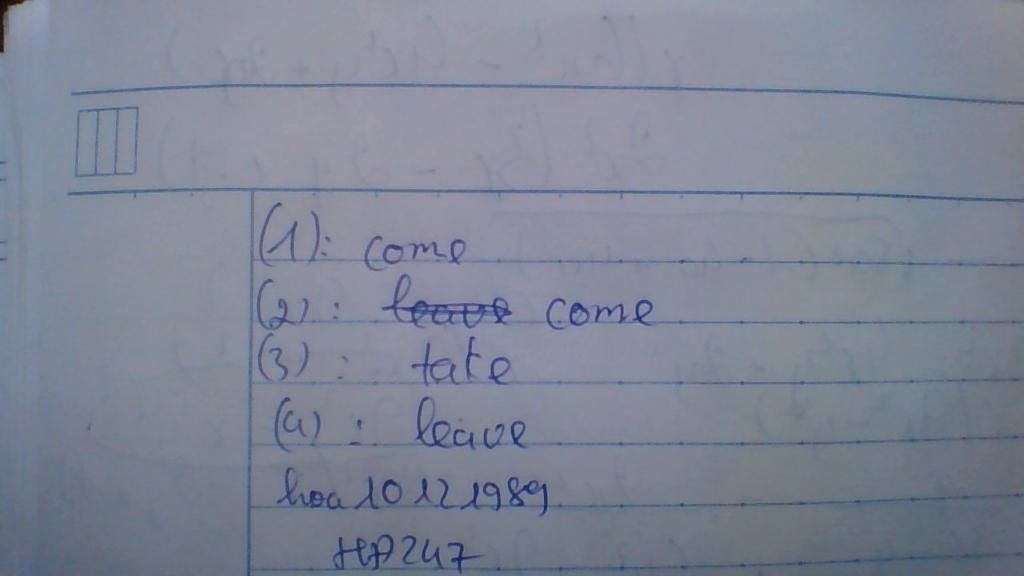 (1): come
(2): leave come
(3): take
(4): leave
hoa10121989
HP247